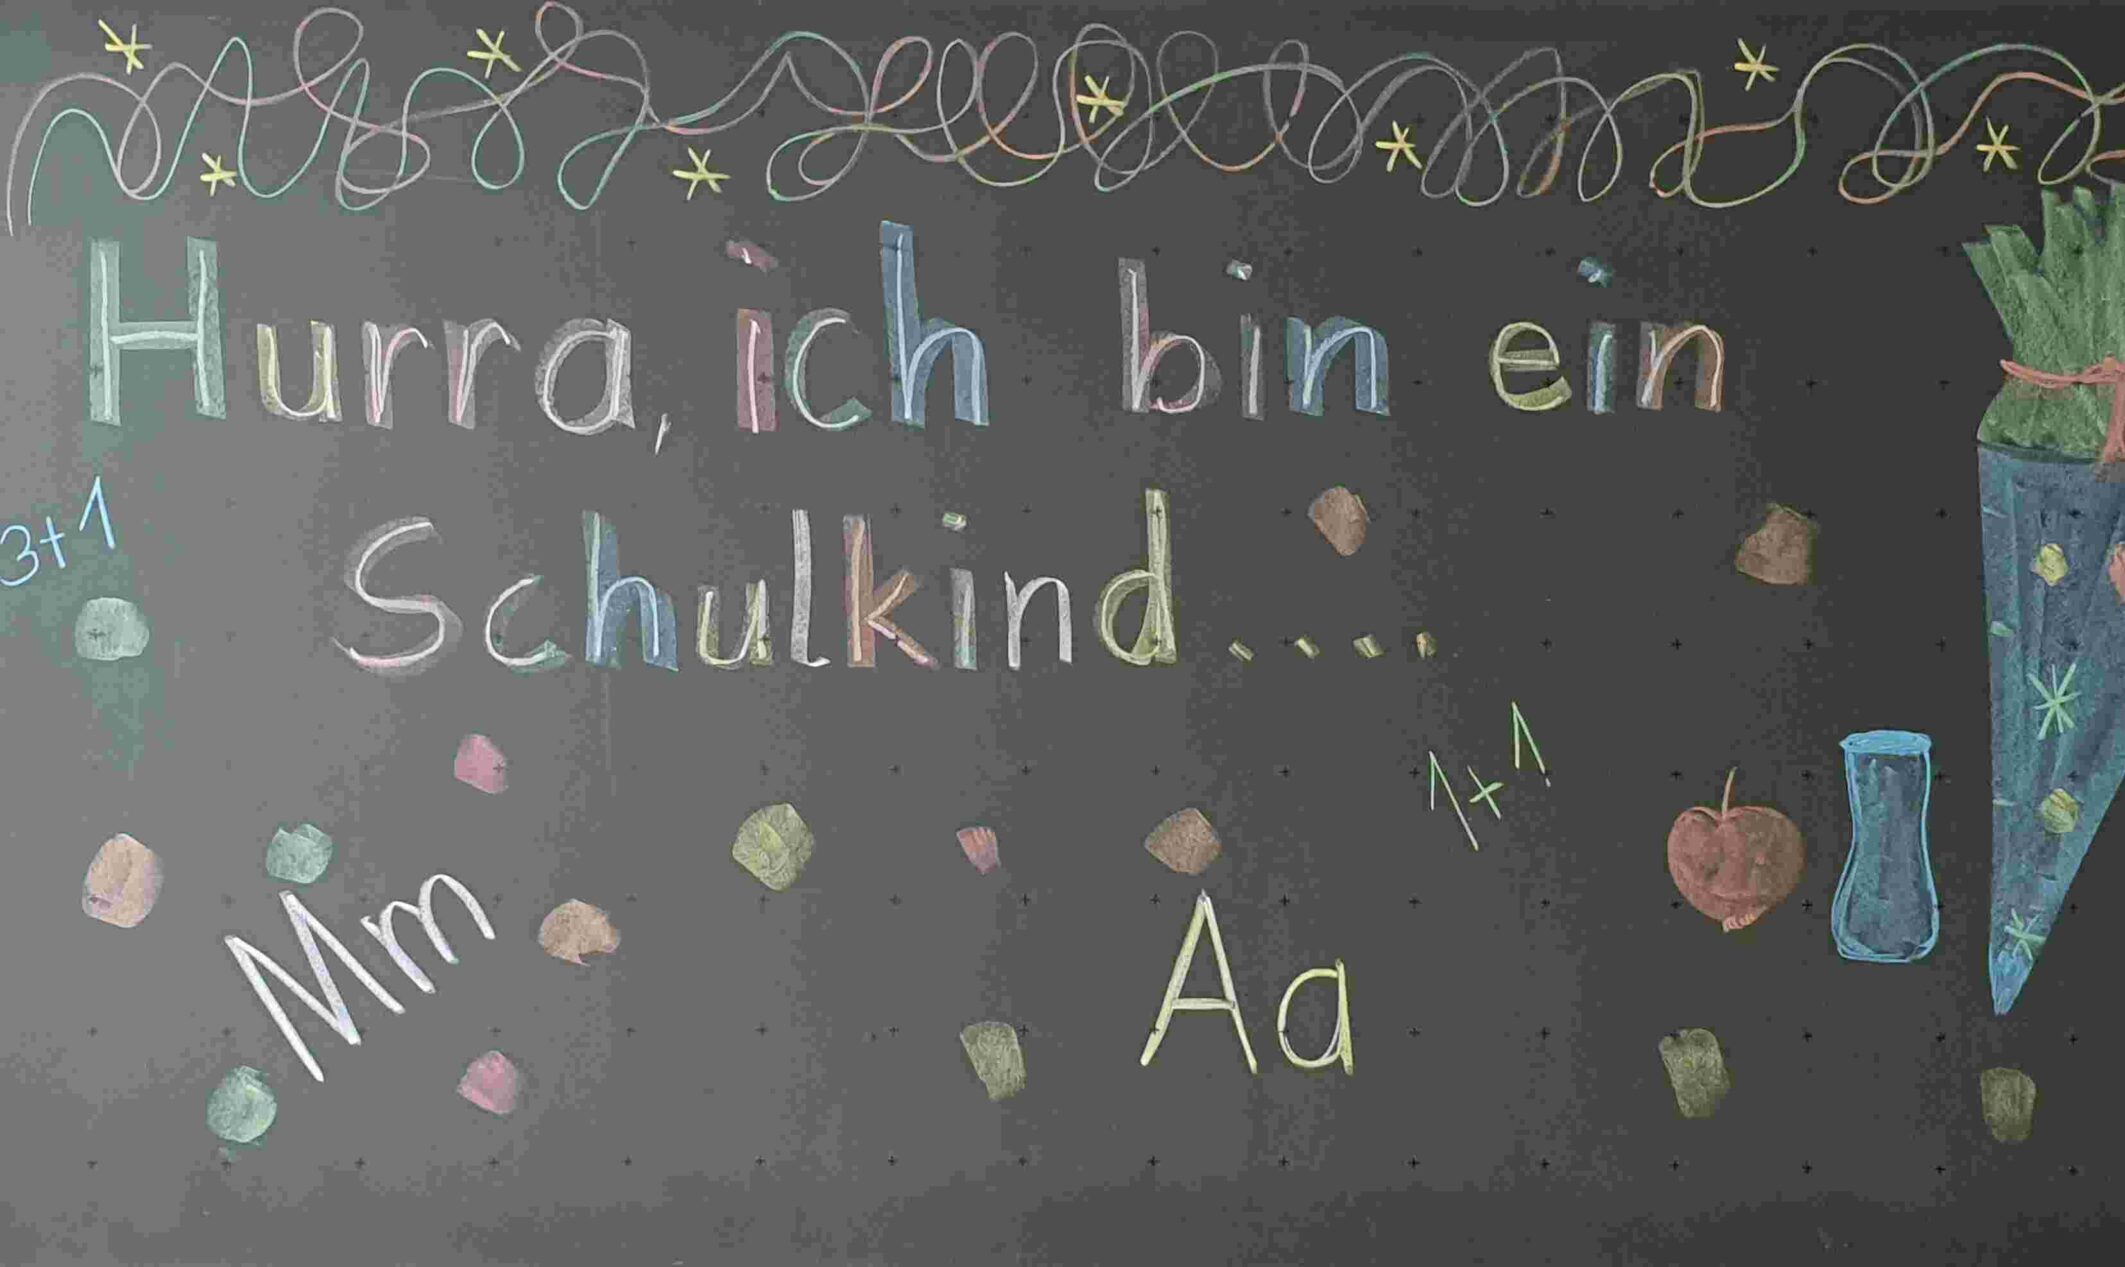 Hurra, ich bin ein
3+1
Schulkind....
1+1
Mm
Aa